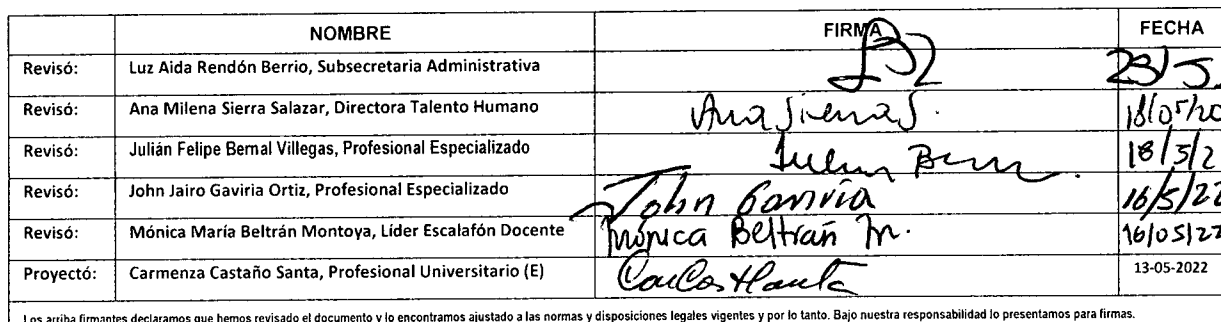 NOMBRE FIRMA FECHA
Revisó: Luz Aida Rendón Berrio, Subsecretaria Administrativa
Revisó: Ana Milena Sierra Salazar, Directora Talento Humano Ana Sierra S. 18/05/20
Revisó: Julián Felipe Bernal Villegas, Profesional Especializado 18/5/2
Revisó: John Jairo Gaviria Ortiz, Profesional Especializado John Gaviria 16/5/22
Revisó: Mónica María Beltrán Montoya, Líder Escalafón Docente Mónica Beltrán M. 16/05/22
Proyectó: Carmenza Castaño Santa, Profesional Universitario (E) 13-05-2022
Los arriba firmantes declaramos que hemos revisado el documento y lo encontramos ajustado a las normas y disposiciones legales vigentes y por lo tanto. Bajo nuestra responsabilidad lo presentamos para firmas.